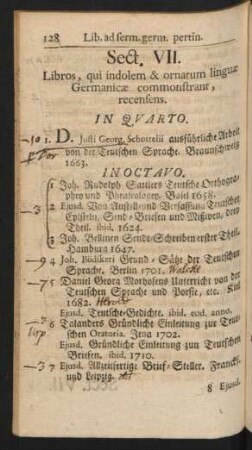 128 Lib. ad serm. germ. pertin.
Sect. VII.
Libros, qui indolem & ornatum linguæ
Germanicæ commonstrant,
recensens.
IN QVARTO.
1. D. Justi Georg. Schottelii ausführliche Arbeit
von der Teutschen Sprache. Braunschweig
1663.
IN OCTAVO.
1 Joh. Rudolph Sattlers Teutsche Orthogra-
phey und Phraseologey. Basel 1658.
2 Ejusd. Von Anstell- und Verfassung Teutschen
Episteln, Send-Briefen und Missiven, dren
Theil. ibid. 1624.
3 Joh. Bellinen Sende-Schreiben erster Theil.
Hamburg 1647.
4 Joh. Bödikeri Grund-Sätze der Teutschen
Sprache. Berlin 1701.
5 Daniel Georg Morhofens Unterricht von der
Teutschen Sprache und Poesie, etc. Kiel
1682.
Ejusd. Teutsche Gedichte. ibid. eod. anno.
6 Talanders Gründliche Einleitung zur Teut-
schen Oratoria. Jena 1702.
Ejusd. Gründliche Einleitung zum Teutschen
Briefen. ibid. 1710.
7 Ejusd. Allzeitfertige Brief-Steller. Franckf.
und Leipzig.
8 Ejusd.